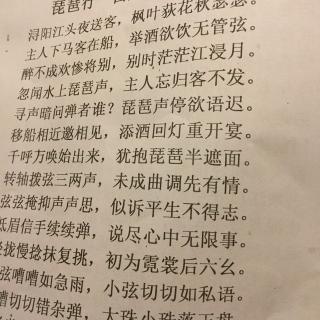 琵琶行
浔阳江头夜送客，枫叶荻花秋瑟瑟。
主人下马客在船，举酒欲饮无管弦。
醉不成欢惨将别，别时茫茫江浸月。
忽闻水上琵琶声，主人忘归客不发。
寻声暗问弹者谁？琵琶声停欲语迟。
移船相近邀相见，添酒回灯重开宴。
千呼万唤始出来，犹抱琵琶半遮面。
转轴拨弦三两声，未成曲调先有情。
弦弦掩抑声声思，似诉平生不得志。
低眉信手续续弹，说尽心中无限事。
轻拢慢捻抹复挑，初为霓裳后六幺。
弦嘈嘈如急雨，小弦切切如私语。
嘈切切错杂弹，大珠小珠落玉盘